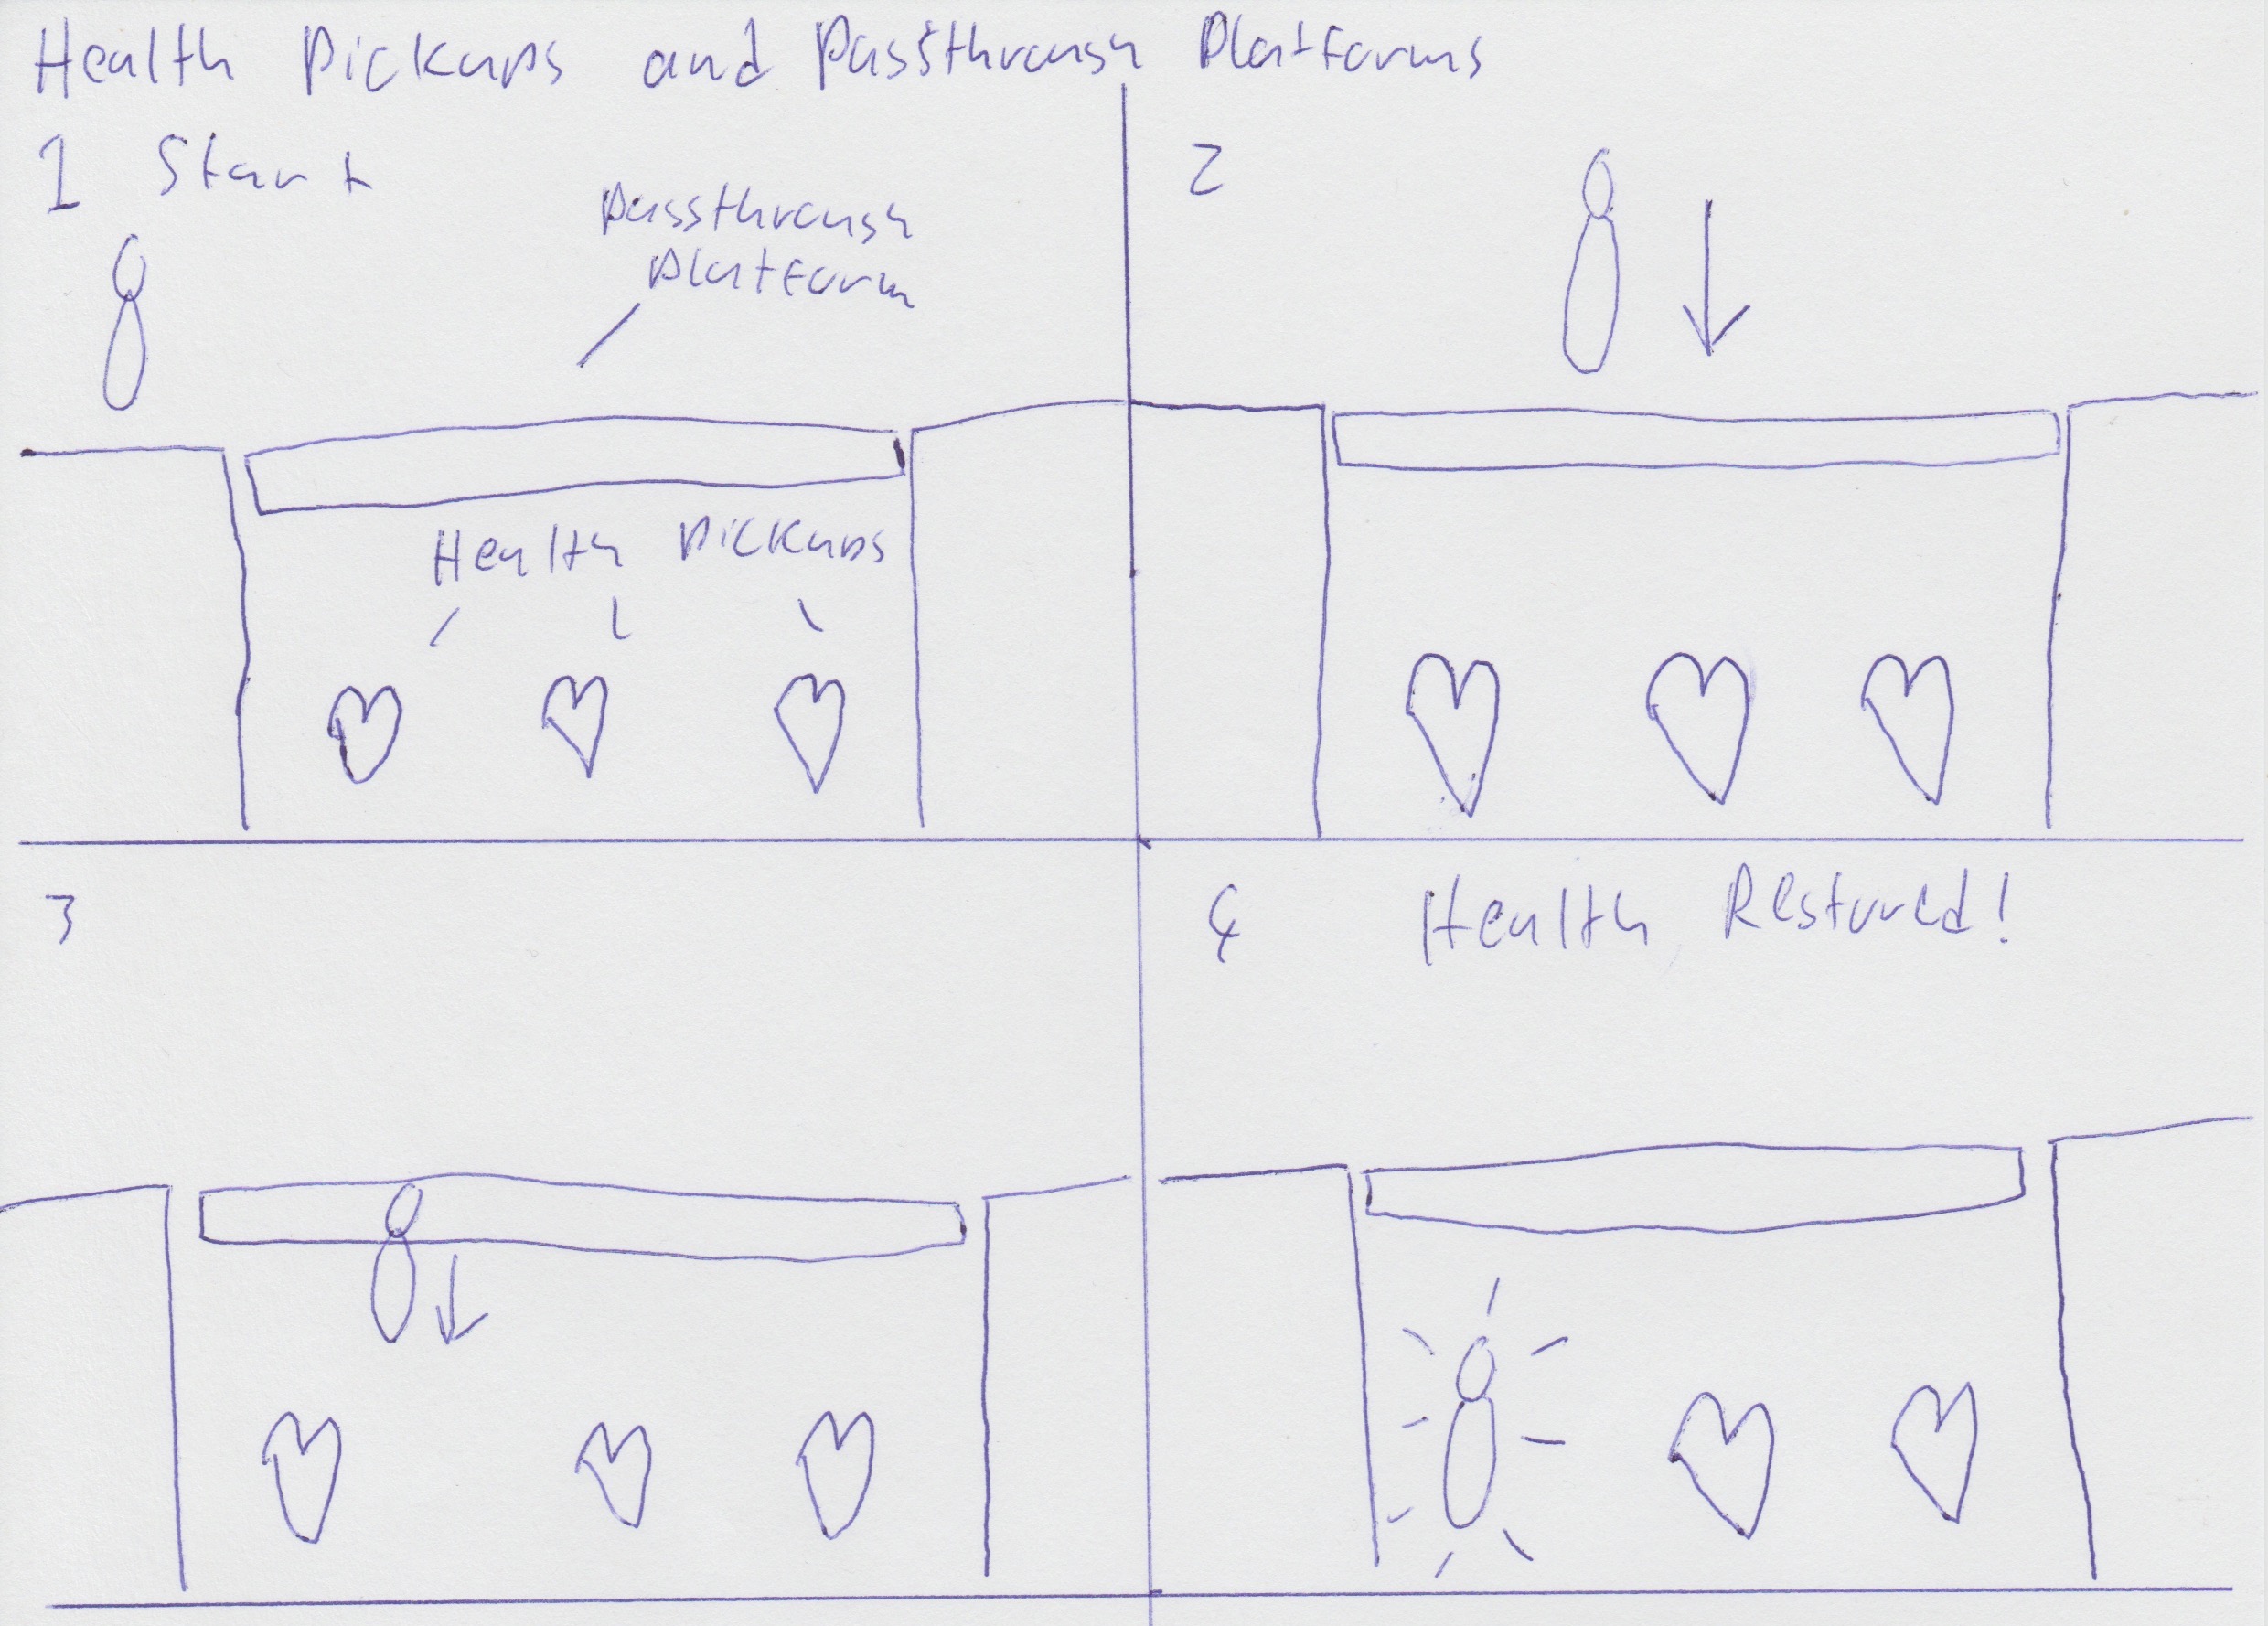 Health Pickups and Passthrough Platforms
1 Start
Passthrough
Platform
Health Pickups
2
3
4
Health Restored!